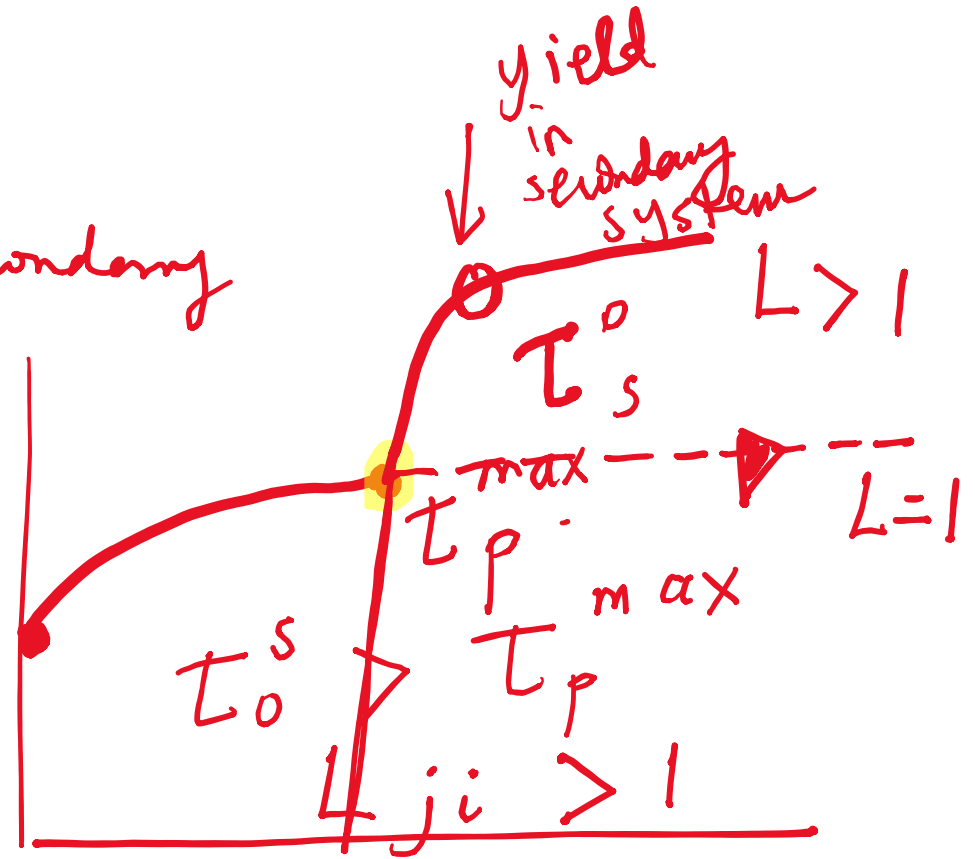 yield
in
secondary
system
ondary
L > 1
τ_s^o
τ_p^max
L=1
τ_o^s
τ_p^max
L_ji > 1